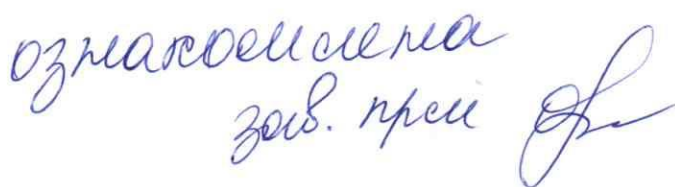 ознакомлена
зав. прм